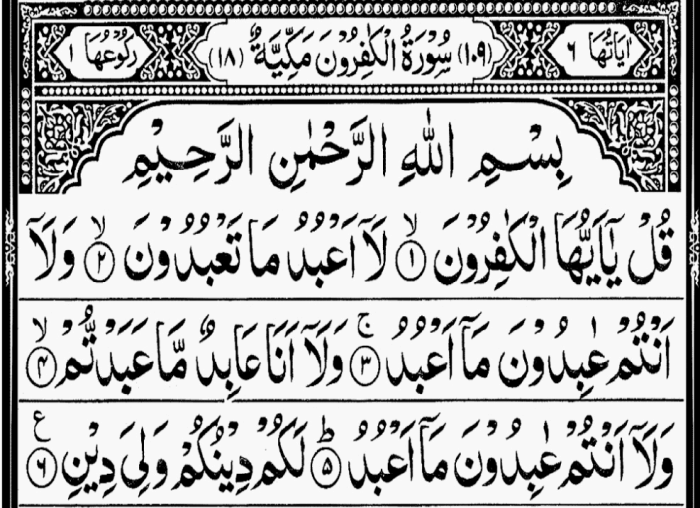 اٰيَاتُهَا ٦ (١٠٩) سُوْرَةُ الْكٰفِرُوْنَ مَكِّيَّةٌ (١٨) رُكُوْعُهَا ١
بِسْمِ اللّٰهِ الرَّحْمٰنِ الرَّحِيْمِ
قُلْ يٰٓاَيُّهَا الْكٰفِرُوْنَ ۙ‏ ١ لَاۤ اَعْبُدُ مَا تَعْبُدُوْنَ ۙ‏ ٢ وَلَاۤ
اَنْتُمْ عٰبِدُوْنَ مَاۤ اَعْبُدُ ۚ‏ ٣ وَلَاۤ اَنَا عَابِدٌ مَّا عَبَدْتُّمْ ۙ‏ ۴
وَلَاۤ اَنْتُمْ عٰبِدُوْنَ مَاۤ اَعْبُدُ ؕ‏ ۵ لَكُمْ دِيْنُكُمْ وَلِىَ دِيْنِ ٦ ع